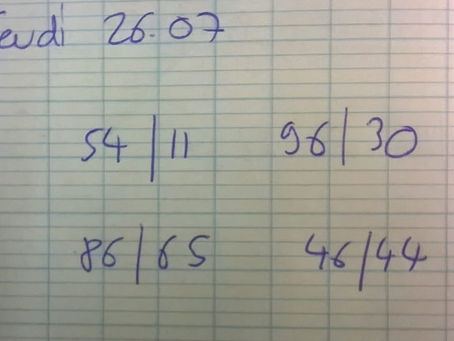 Jeudi 26.07
54 | 11 96 | 30
86 / 65 46 / 44